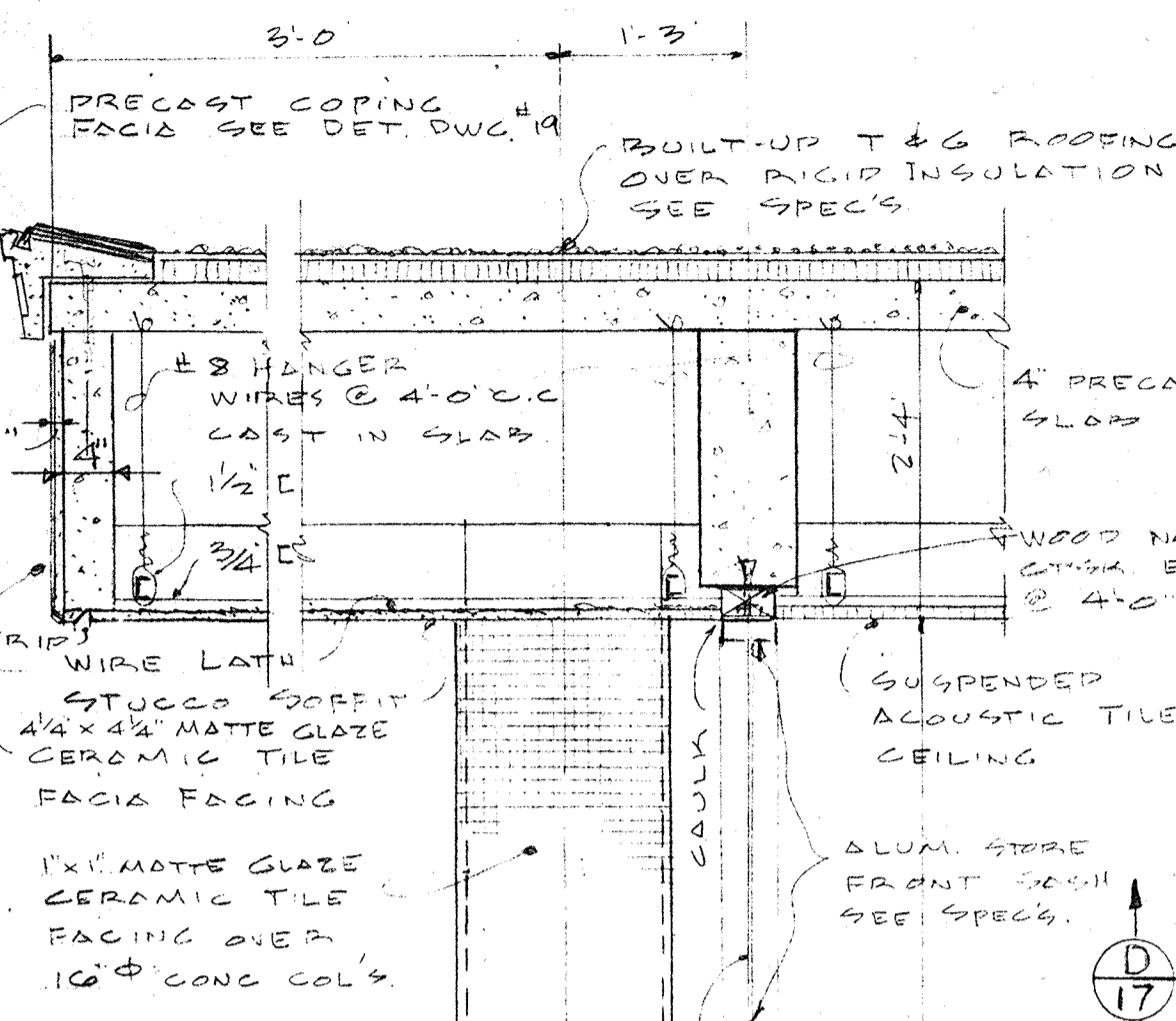 3'-0
1'-3
PRECAST COPING
FACIA SEE DET. DWG. #19
BUILT-UP T & G ROOFING
OVER RIGID INSULATION
SEE SPEC'S.
#8 HANGER
WIRES @ 4'-0" C.C
CAST IN SLAB
4"
1 1/2" [
3/4" [
4" PRECA
SLAB
2'-4"
WOOD
@ 4'-0"
WIRE LATH
STUCCO SOFFIT
4 1/4" x 4 1/4" MATTE GLAZE
CERAMIC TILE
FACIA FACING
SUSPENDED
ACOUSTIC TILE
CEILING
CAULK
1"x1" MATTE GLAZE
CERAMIC TILE
FACING OVER
16" Φ CONC COL'S.
ALUM. STORE
FRONT SASH
SEE SPEC'S.
D
17